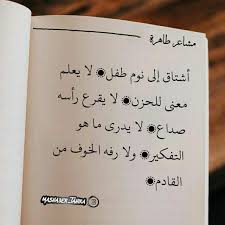 مشاعر طاهرة
أشتاق إلى نوم طفل◉ لا يعلم
معنى للحزن◉ لا يقرع رأسه
صداع◉ لا يدرى ما هو
التفكير◉ ولا رفه الخوف من
القادم◉
MASHAEER_TAHRA